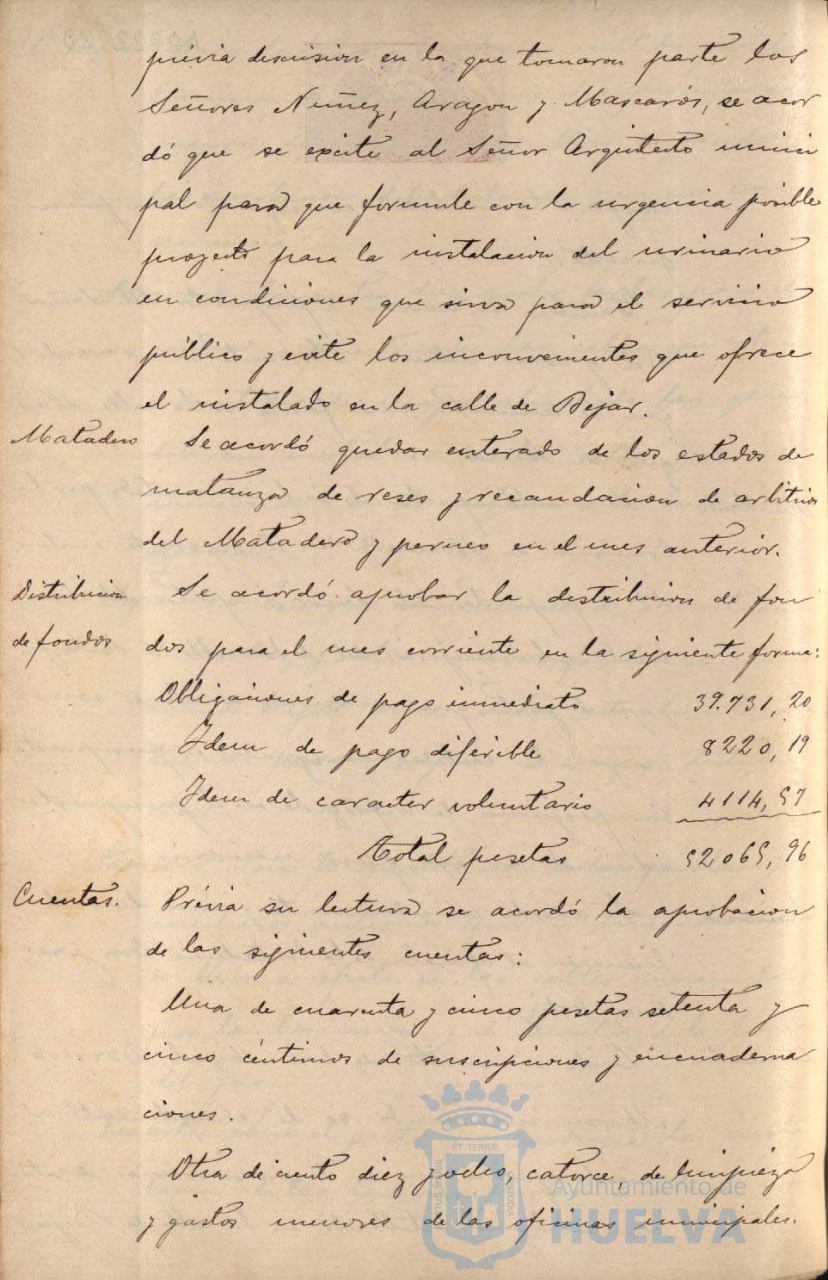 prévia discusion en la que tomaron parte los
Señores Nuñez, Aragon y Mascarós, se acor
dó que se excite al Señor Arquitecto munici
pal para que formule con la urgencia posible
proyecto para la instalacion del urinario
en condiciones que sirva para el servicio
público y evite los inconvenientes que ofrece
el instalado en la calle de Bejar.
Matadero
Se acordó quedar enterado de los estados de
matanza de reses y recaudacion de arbitrios
del Matadero y perneo en el mes anterior.
Distribucion
de fondos
Se acordó aprobar la distribucion de fon
dos para el mes corriente en la siguiente forma:
Obligaciones de pago inmediato 39.731,20
Idem de pago diferible 8220,19
Idem de caracter voluntario 4114,57
Total pesetas 52065,96
Cuentas.
Prévia su lectura se acordó la aprobacion
de las siguientes cuentas:
Una de cuarenta y cinco pesetas setenta y
cinco céntimos de suscripciones y encuaderna
ciones.
Otra de ciento diez y ocho, catorce, de limpieza
y gastos menores de las oficinas municipales.
ET TERRA
Ayuntamiento de
HUELVA